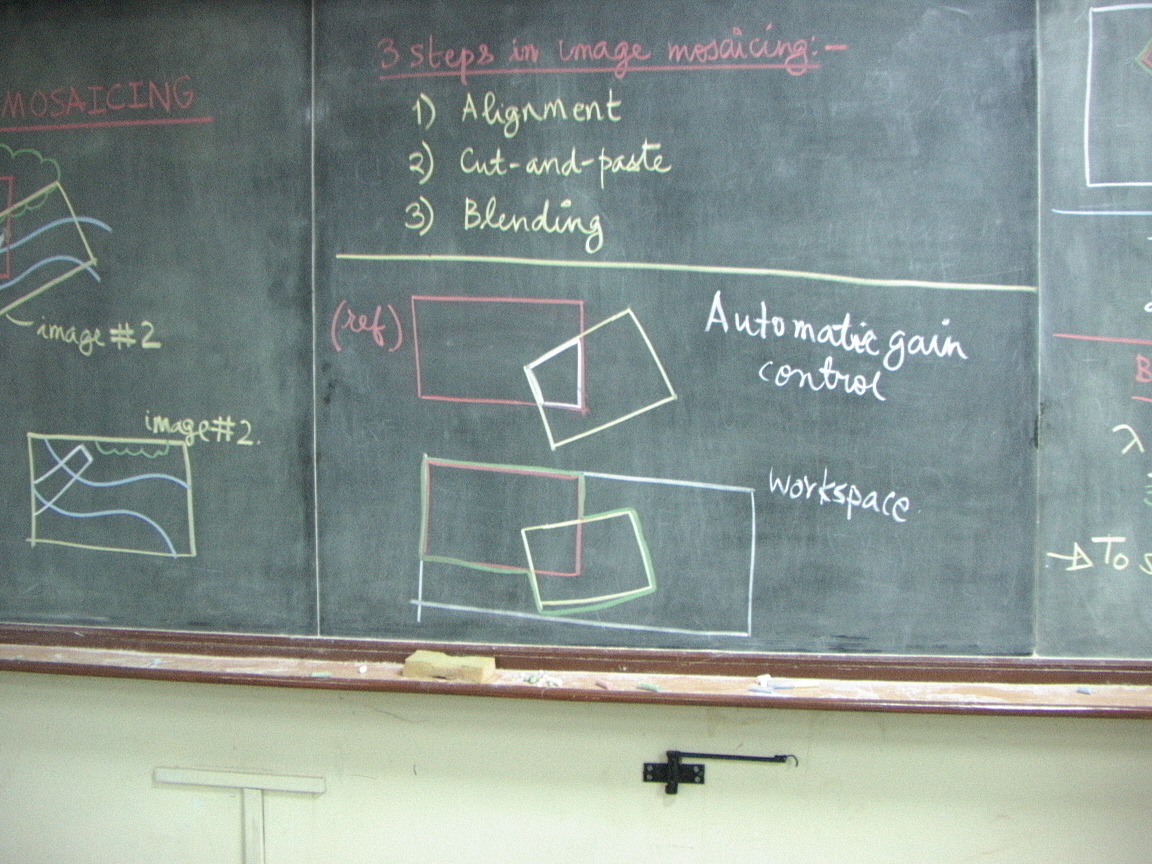 MOSAICING
image #2
image #2.
3 steps in image mosaicing:-
1) Alignment
2) Cut-and-paste
3) Blending
(ref)
Automatic gain
control
workspace
B
λ
→ To